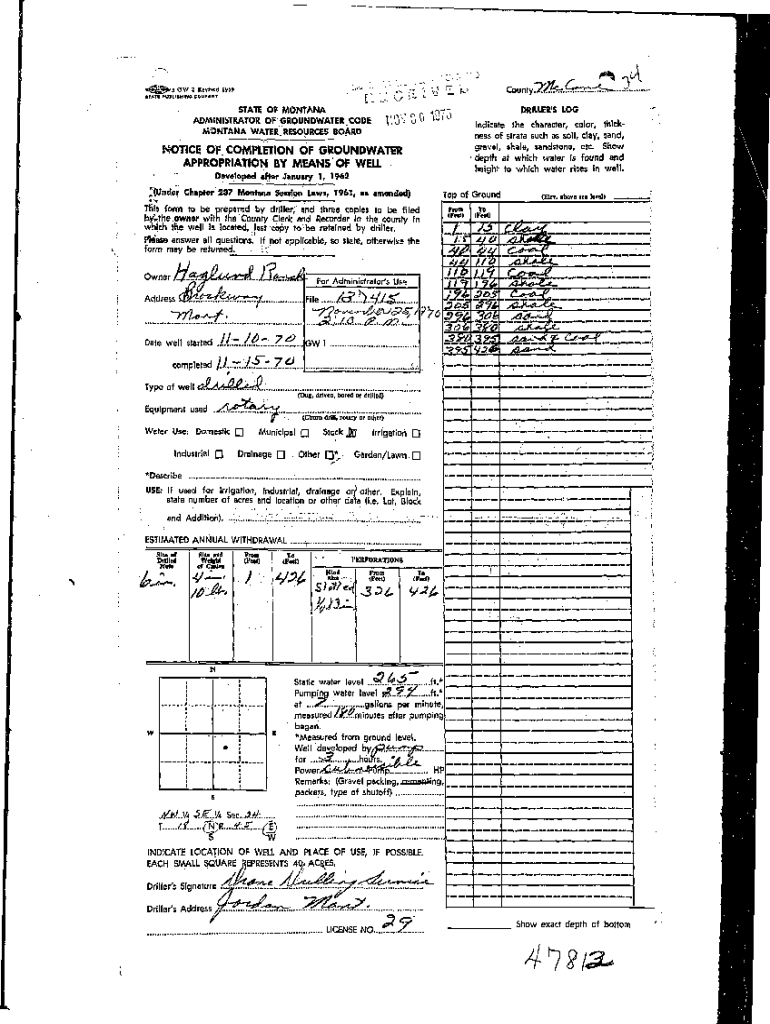 GW 2 Revised 1959
STATE PUBLISHING COMPANY
RECEIVED
NOV 30 1973
County McCone 34
STATE OF MONTANA
ADMINISTRATOR OF GROUNDWATER CODE
MONTANA WATER RESOURCES BOARD
NOTICE OF COMPLETION OF GROUNDWATER
APPROPRIATION BY MEANS OF WELL
Developed after January 1, 1962
(Under Chapter 237 Montana Session Laws, 1961, as amended)
This form to be prepared by driller, and three copies to be filed
by the owner with the County Clerk and Recorder in the county in
which the well is located, last copy to be retained by driller.
Please answer all questions. If not applicable, so state, otherwise the
form may be returned.
Owner Haglund Ranch
Address Brockway
Mont.
For Administrator's Use
File 137415
November 25, 1970
2:10 P.M.
GW 1
Date well started 11-10-70
completed 11-15-70
Type of well drilled
(Dug, driven, bored or drilled)
Equipment used rotary
(Churn drill, rotary or other)
Water Use: Domestic Municipal Stock Irrigation
Industrial Drainage Other * Garden/Lawn
*Describe
USE: If used for irrigation, industrial, drainage or other. Explain,
state number of acres and location or other data (i.e. Lot, Block
and Addition).
ESTIMATED ANNUAL WITHDRAWAL
Size of Drilled Hole Size and Weight of Casing From (Feet) To (Feet) PERFORATIONS
Kind Size From (Feet) To (Feet)
6 in. 4 1 426 Slotted 326 426
10 lbs
N
W E
S
Static water level 265 ft.*
Pumping water level 294 ft.*
at gallons per minute,
measured 180 minutes after pumping
began.
*Measured from ground level.
Well developed by pump
for 3 hours.
Power submersible Pump HP
Remarks: (Gravel packing, cementing,
packers, type of shutoff)
NW ¼ SE ¼ Sec. 34
T 18 N R 45 E
S W
INDICATE LOCATION OF WELL AND PLACE OF USE, IF POSSIBLE.
EACH SMALL SQUARE REPRESENTS 40 ACRES.
Driller's Signature Drilling Service
Driller's Address Jordan Mont.
LICENSE NO. 29
DRILLER'S LOG
Indicate the character, color, thick-
ness of strata such as soil, clay, sand,
gravel, shale, sandstone, etc. Show
depth at which water is found and
height to which water rises in well.
Top of Ground (Elev. above sea level)
From (Feet) To (Feet)
1 15 Clay
15 40 shale
40 44 Coal
44 110 shale
110 119 Coal
119 196 shale
196 205 Coal
205 296 shale
296 306 sand
306 380 shale
380 395 sand & Coal
395 426 sand
Show exact depth of bottom
47813